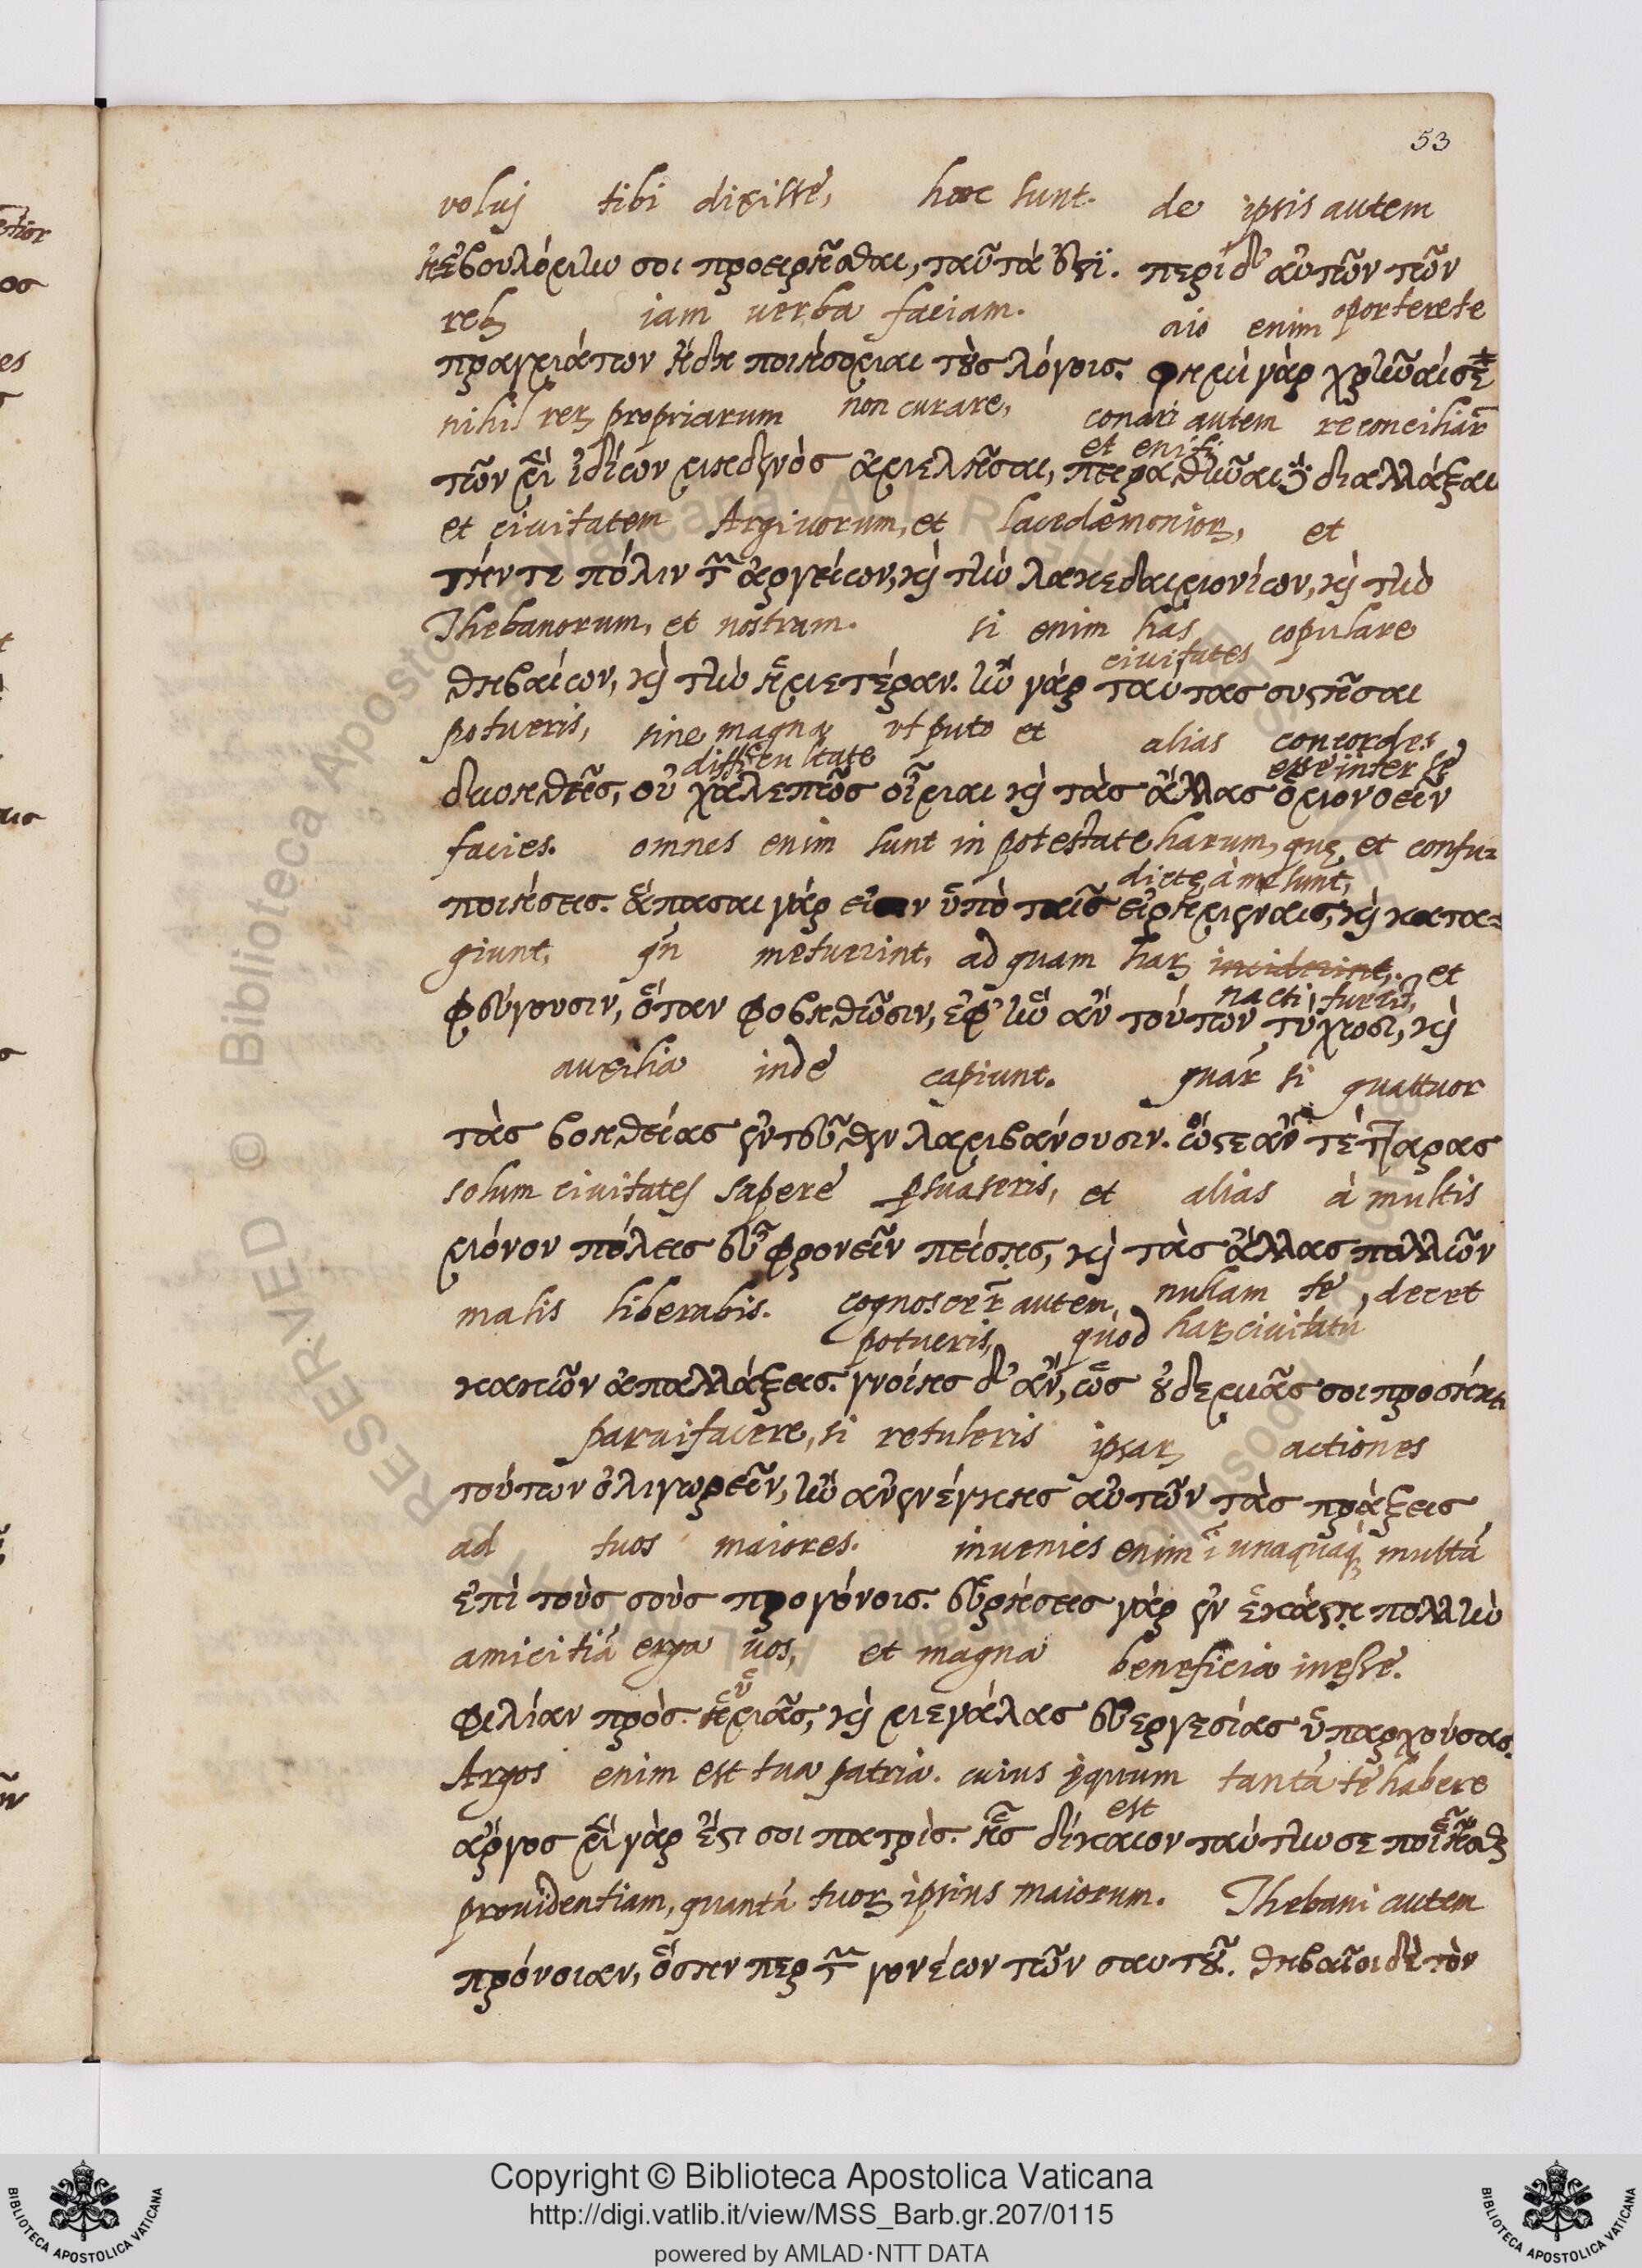 53
voluj tibi dixisse, hæc sunt. de ipsis autem
ἠβουλόμην σοι προειρῆσθαι, ταῦτά ἐστϊ. περὶ δ' αὐτῶν τῶν
reb iam verba faciam. aio enim oportere te
πραγμάτων ἤδη ποιήσομαι τοὺς λόγοις. φημὶ γὰρ χρῆναί σε
nihil rer propriarum non curare, conari autem reconciliar
et eniti
τῶν μὲν ἰδίων μηδενὸς ἀμελῆσαι, πειραθῆναι δὲ διαλλάξαι
et civitatem Argivorum, et Lacedæmonior, et
τήν τε πόλιν τῶν ἀργείων, καὶ τὴν λακεδαιμονίων, καὶ τὴν
Thebanorum, et nostram. si enim has copulare
civitates
θηβαίων, καὶ τὴν ἡμετέραν. ἢν γὰρ ταύτας συστῆσαι
potueris, sine magna vt puto et alias concordes
difficultate esse inter se
δυνηθεῖς, οὐ χαλεπῶς οἶμαι καὶ τὰς ἄλλας ὁμονοεῖν
facies. omnes enim sunt in potestate harum, quę et confu=
dictę à me sunt,
ποιήσεις. ἅπασαι γάρ εἰσιν ὑπὸ ταῖς εἰρημέναις, καὶ κατα=
giunt, qn metuerint, ad quam har inciderint, et
nacti fuerīt,
φεύγουσιν, ὅταν φοβηθῶσιν, ἐφ' ἣν ἂν τούτων τύχωσι, καὶ
auxilia inde capiunt. quar si quattuor
τὰς βοηθείας ἐντεῦθεν λαμβάνουσιν. ὥστε ἂν τέτταρας
solum civitates sapere psuaseris, et alias à multis
μόνον πόλεις εὖ φρονεῖν πείσῃς, καὶ τὰς ἄλλας πολλῶν
malis liberabis. cognoscere autem nullam te decet
potueris, quòd har civitatū
κακῶν ἀπαλλάξεις. γνοίης δ' ἂν, ὡς οὐδεμιᾶς σοι προσήκει
parvifacere, si retuleris ipsar actiones
τούτων ὀλιγωρεῖν, ἢν ἀνενέγκῃς αὐτῶν τὰς πράξεις
ad tuos maiores. invenies enim ī unaquaq multā
ἐπὶ τοὺς σοὺς προγόνοις. εὑρήσεις γὰρ ἐν ἑκάστῃ πολλὴν
amicitiā erga vos, et magna beneficia inesse.
φιλίαν πρὸς ἡμᾶς, καὶ μεγάλας εὐεργεσίας ὑπαρχούσας.
Argos enim est tua patria. cuius ęquum tantā te habere
est
ἄργος μὲν γὰρ ἐστι σοι πατρὶς. ἧς δίκαιον ταύτην σε ποιεῖσθαι
providentiam, quantā tuor ipsius maiorum. Thebani autem
πρόνοιαν, ὅσην περ τῶν γονέων τῶν σαυτοῦ. θηβαῖοι δὲ τὸν
Copyright © Biblioteca Apostolica Vaticana
http://digi.vatlib.it/view/MSS_Barb.gr.207/0115
powered by AMLAD·NTT DATA
BIBLIOTECA APOSTOLICA VATICANA
BIBLIOTECA APOSTOLICA VATICANA